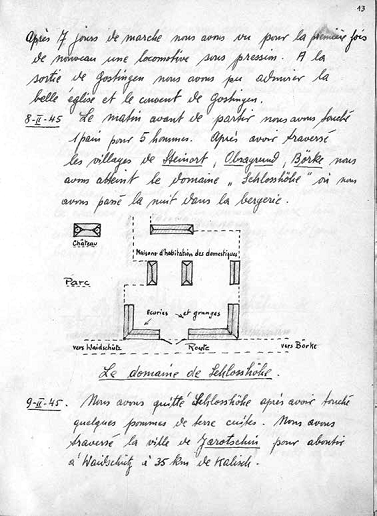 13
Après 7 jours de marche nous avons vu pour la première fois
de nouveau une locomotive sous pression. A la
sortie de Gostingen nous avons pu admirer la
belle église et le couvent de Gostingen.
8-II-45 Le matin avant de partir nous avons touché
1 pain pour 5 hommes. Après avoir traversé
les villages de Steinort, Obragrund, Börke nous
avons atteint le domaine „Schlosshöhe" où nous
avons passé la nuit dans la bergerie.
Château
Maisons d'habitation des domestiques
Parc
écuries et granges
vers Waidschütz Route vers Börke
Le domaine de Schlosshöhe.
9-II-45. Nous avons quitté Schlosshöhe après avoir touché
quelques pommes de terre cuites. Nous avons
traversé la ville de Jarotschin pour aboutir
à Waidschütz à 35 km de Kalisch.